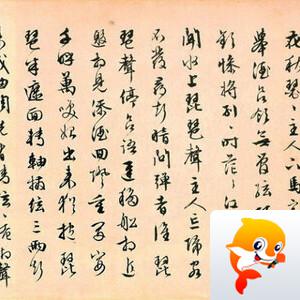 花秋瑟〻主人下馬客
舉酒欲飲無管絃
歡慘將別〻時茫〻
聞水上琵琶聲主人忘歸客
不發尋聲暗問彈者誰
琵琶聲停欲語遲移船相近
邀相見添酒回燈重開宴
千呼萬喚始出來猶抱琵
琶半遮面轉軸撥絃三兩聲
未成曲調先有情絃〻掩抑聲